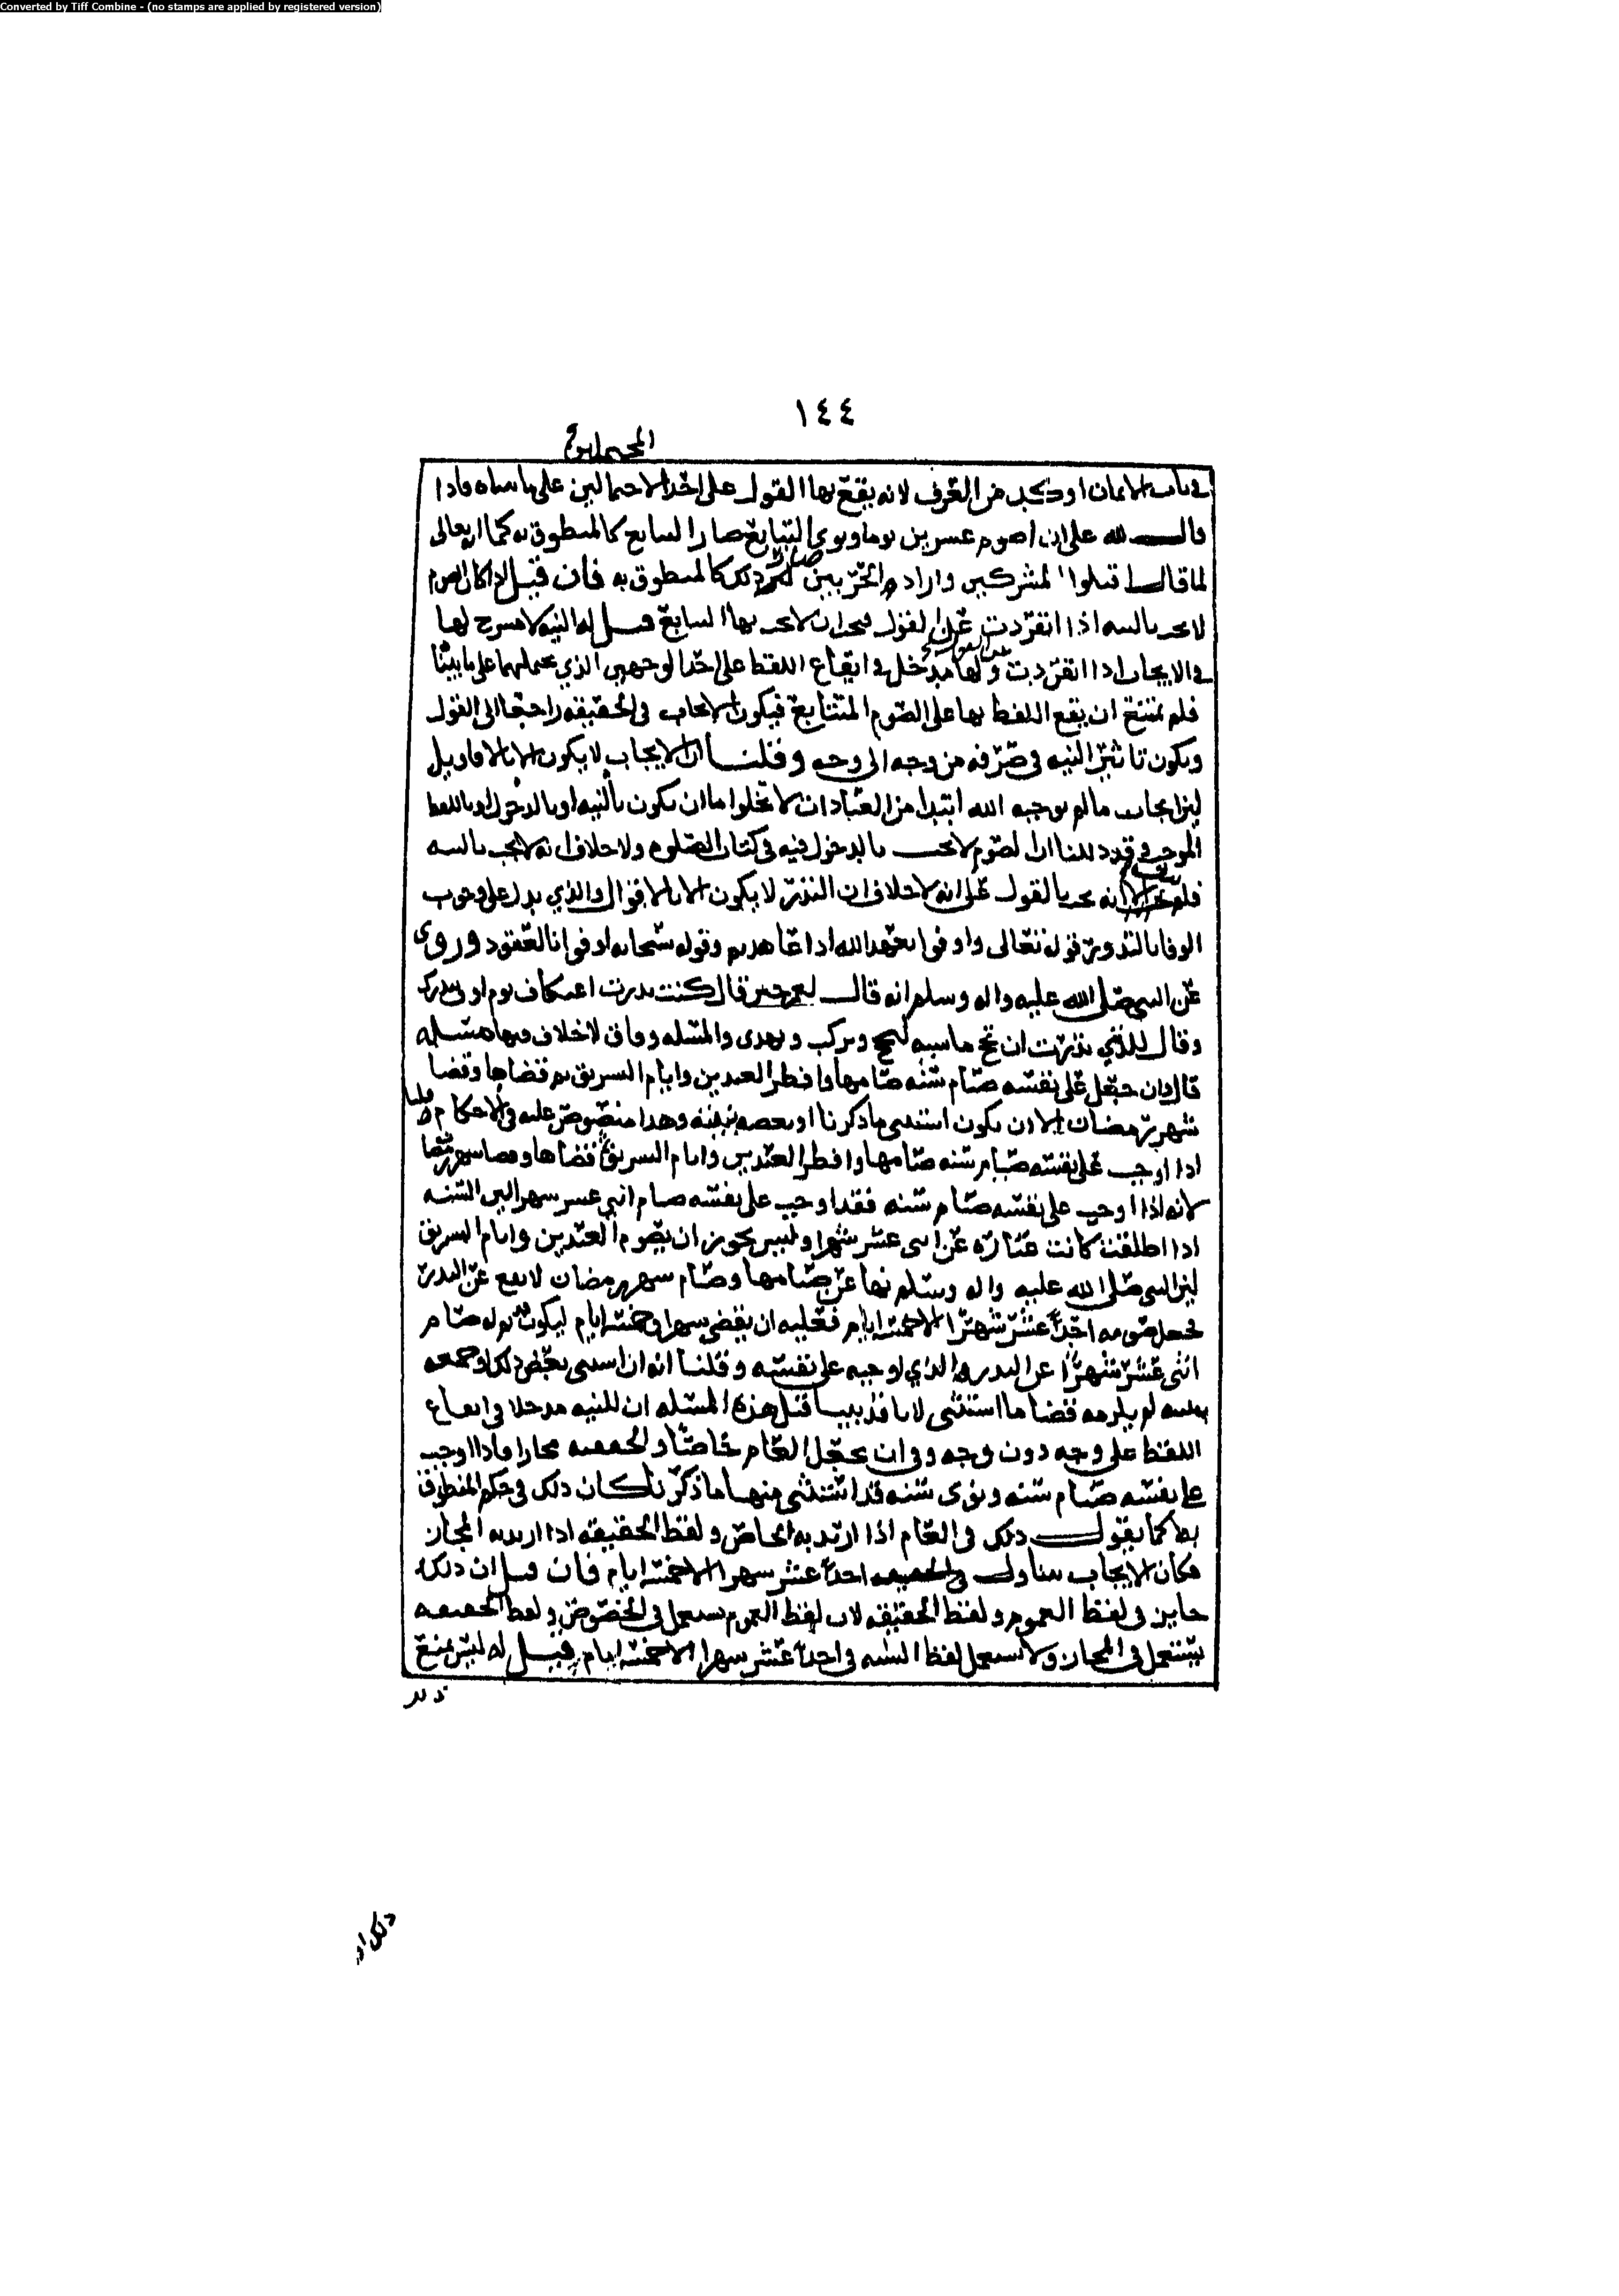 Converted by Tiff Combine - (no stamps are applied by registered version)
١٤٤
في باب الايمان اوكد من العرف لانه يقع بها القول على احد الاحتمالين على ما بيناه فاذا
قال لله علي ان اصوم عشرين يوما ونوى التتابع صار التتابع كالمنطوق به كما ان الله تعالى
لما قال اقتلوا المشركين واراد الحربيين صار ذلك كالمنطوق به فان قيل اذا كان الصوم
لا يجب بالنيه اذا انفردت عن القول فيجب ان لا يجب بها التتابع قيل له النيه لا مسرح لها
في الايجاب اذا انفردت عن القول ولها مدخل في ايقاع اللفظ على احد الوجهين الذي يحتملهما على ما بينا
فلم يمتنع ان يقع اللفظ بها على الصوم المتتابع فيكون الايجاب في الحقيقه راجعا الى القول
ويكون تاثير النيه في صرفه من وجه الى وجه وقلنا ان الايجاب لا يكون الا بالاقاويل
لان ايجاب ما لم يوجبه الله ابتدا من العبادات لا يخلوا ما ان يكون بالنيه او بالدخول او باللفظ
الموجب وقد دللنا ان الصوم لا يجب بالدخول فيه في كتاب الصلوه ولا خلاف انه لا يجب بالنيه
فلم يبق الا انه يجب بالقول على انه لا خلاف ان النذر لا يكون الا بالاقوال والذي يدل على وجوب
الوفا بالنذور قوله تعالى واوفوا بعهد الله اذا عاهدتم وقوله سبحانه اوفوا بالعقود وروى
عن النبي صلى الله عليه واله وسلم انه قال لعمر حين قال كنت نذرت اعتكاف يوم اوف بنذرك
وقال للذي نذرت ان تحج ماشيه لتحج وتركب وتهدى والمسله وفاق لا خلاف فيها مسله
قال وان جعل على نفسه صيام سنه صامها وافطر العيدين وايام التشريق ثم قضاها وقضا
شهر رمضان الا ان يكون استثنى ما ذكرنا او بعضه بنيته وهذا منصوص عليه في الاحكام قلنا
اذا اوجب على نفسه صيام سنه صامها وافطر العيدين وايام التشريق ثم قضاها وقضا شهر رمضان
لانه اذا اوجب على نفسه صيام سنه فقد اوجب على نفسه صيام اثني عشر شهرا لان السنه
اذا اطلقت كانت عباره عن اثنى عشر شهرا وليس يجوز ان يصوم العيدين وايام التشريق
لان النبي صلى الله عليه واله وسلم نها عن صيامها وصيام شهر رمضان لا يقع عن النذر
فحصل صومه احد عشر شهرا الا خمسه ايام فعليه ان يقضي شهرا وخمسه ايام ليكون قد تم له صيام
اثنى عشر شهرا عن النذر الذي اوجبه على نفسه وقلنا انه ان استثنى بعض ذلك او جميعه
بنيته لم يلزمه قضا ما استثنى لانا قد بينا قبل هذه المسله ان للنيه مدخلا في ايقاع
اللفظ على وجه دون وجه وفي ان يجعل العام خاصا والحقيقه مجازا فاذا اوجب
على نفسه صيام سنه ونوى سنه قد استثنى منها ما ذكرنا كان ذلك في حكم المنطوق
به كما يقول ذلك في العام اذا اريد به الخاص ولفظ الحقيقه اذا اريد به المجاز
فكان الايجاب يتناول في الحقيقه احد عشر شهرا الا خمسه ايام فان قيل ان ذلك
جايز في لفظ العموم ولفظ الحقيقه لان لفظ العموم يستعمل في الخصوص ولفظ الحقيقه
يستعمل في المجاز ولا يستعمل لفظ السنه في احد عشر شهرا الا خمسه ايام قيل له ليس يمنع